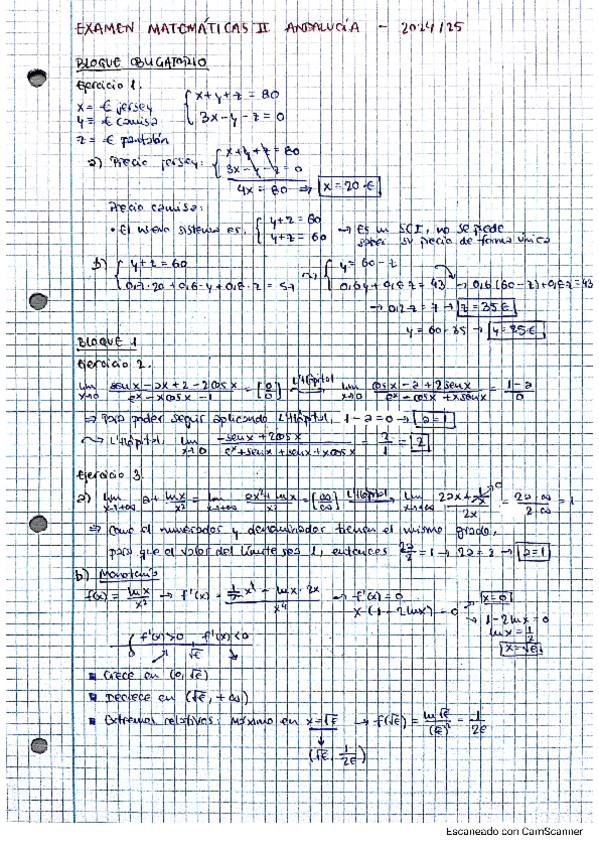 EXAMEN MATEMÁTICAS II ANDALUCÍA - 2024/25
BLOQUE OBLIGATORIO
Ejercicio 1.
x = € jersey
y = € camisa
z = € pantalón
{ x+y+z = 80
3x-y-z = 0
a) Precio jersey: { x+y+z = 80
3x-y-z = 0
4x = 80 ⇒ x = 20 €
Precio camisa:
• El nuevo sistema es: { y+z = 60
y+z = 60
→ Es un SCI, no se puede
saber su precio de forma única
b) { y+z = 60
0,7·20+0,6·y+0,8·z = 57
~ { y = 60-z
0,6y+0,8z = 43 → 0,6(60-z)+0,8z = 43
→ 0,2z = 7 → z = 35€
y = 60-35 → y = 25€
BLOQUE 1
Ejercicio 2.
lim x→0 senx-ax+2-2cosx / eˣ-xcosx-1 = [0/0] L'Hôpital lim x→0 cosx-a+2senx / eˣ-cosx+xsenx = 1-a / 0
⇒ Para poder seguir aplicando L'Hôpital, 1-a = 0 → a = 1
~ L'Hôpital: lim x→0 -senx+2cosx / eˣ+senx+senx+xcosx = 2/1 = 2
Ejercicio 3.
a) lim x→+∞ a + lnx/x² = lim x→+∞ ax²+lnx / x² = [∞/∞] L'Hôpital lim x→+∞ 2ax+1/x / 2x = 2a·∞ / 2·∞ = 1
⇒ Como el numerador y denominador tienen el mismo grado,
para que el valor del límite sea 1, entonces 2a/2 = 1 → 2a = 2 → a = 1
b) Monotonía
f(x) = lnx/x² → f'(x) = 1/x·x² - lnx·2x / x⁴ → f'(x) = 0
x·(1-2lnx) = 0
x = 0
1-2lnx = 0
lnx = 1/2
x = √e
0 f'(x)>0 f'(x)<0
√e
▪ Crece en (0, √e)
▪ Decrece en (√e, +∞)
▪ Extremos relativos: Máximo en x = √e → f(√e) = ln√e / (√e)² = 1/2e
(√e, 1/2e)
Escaneado con CamScanner